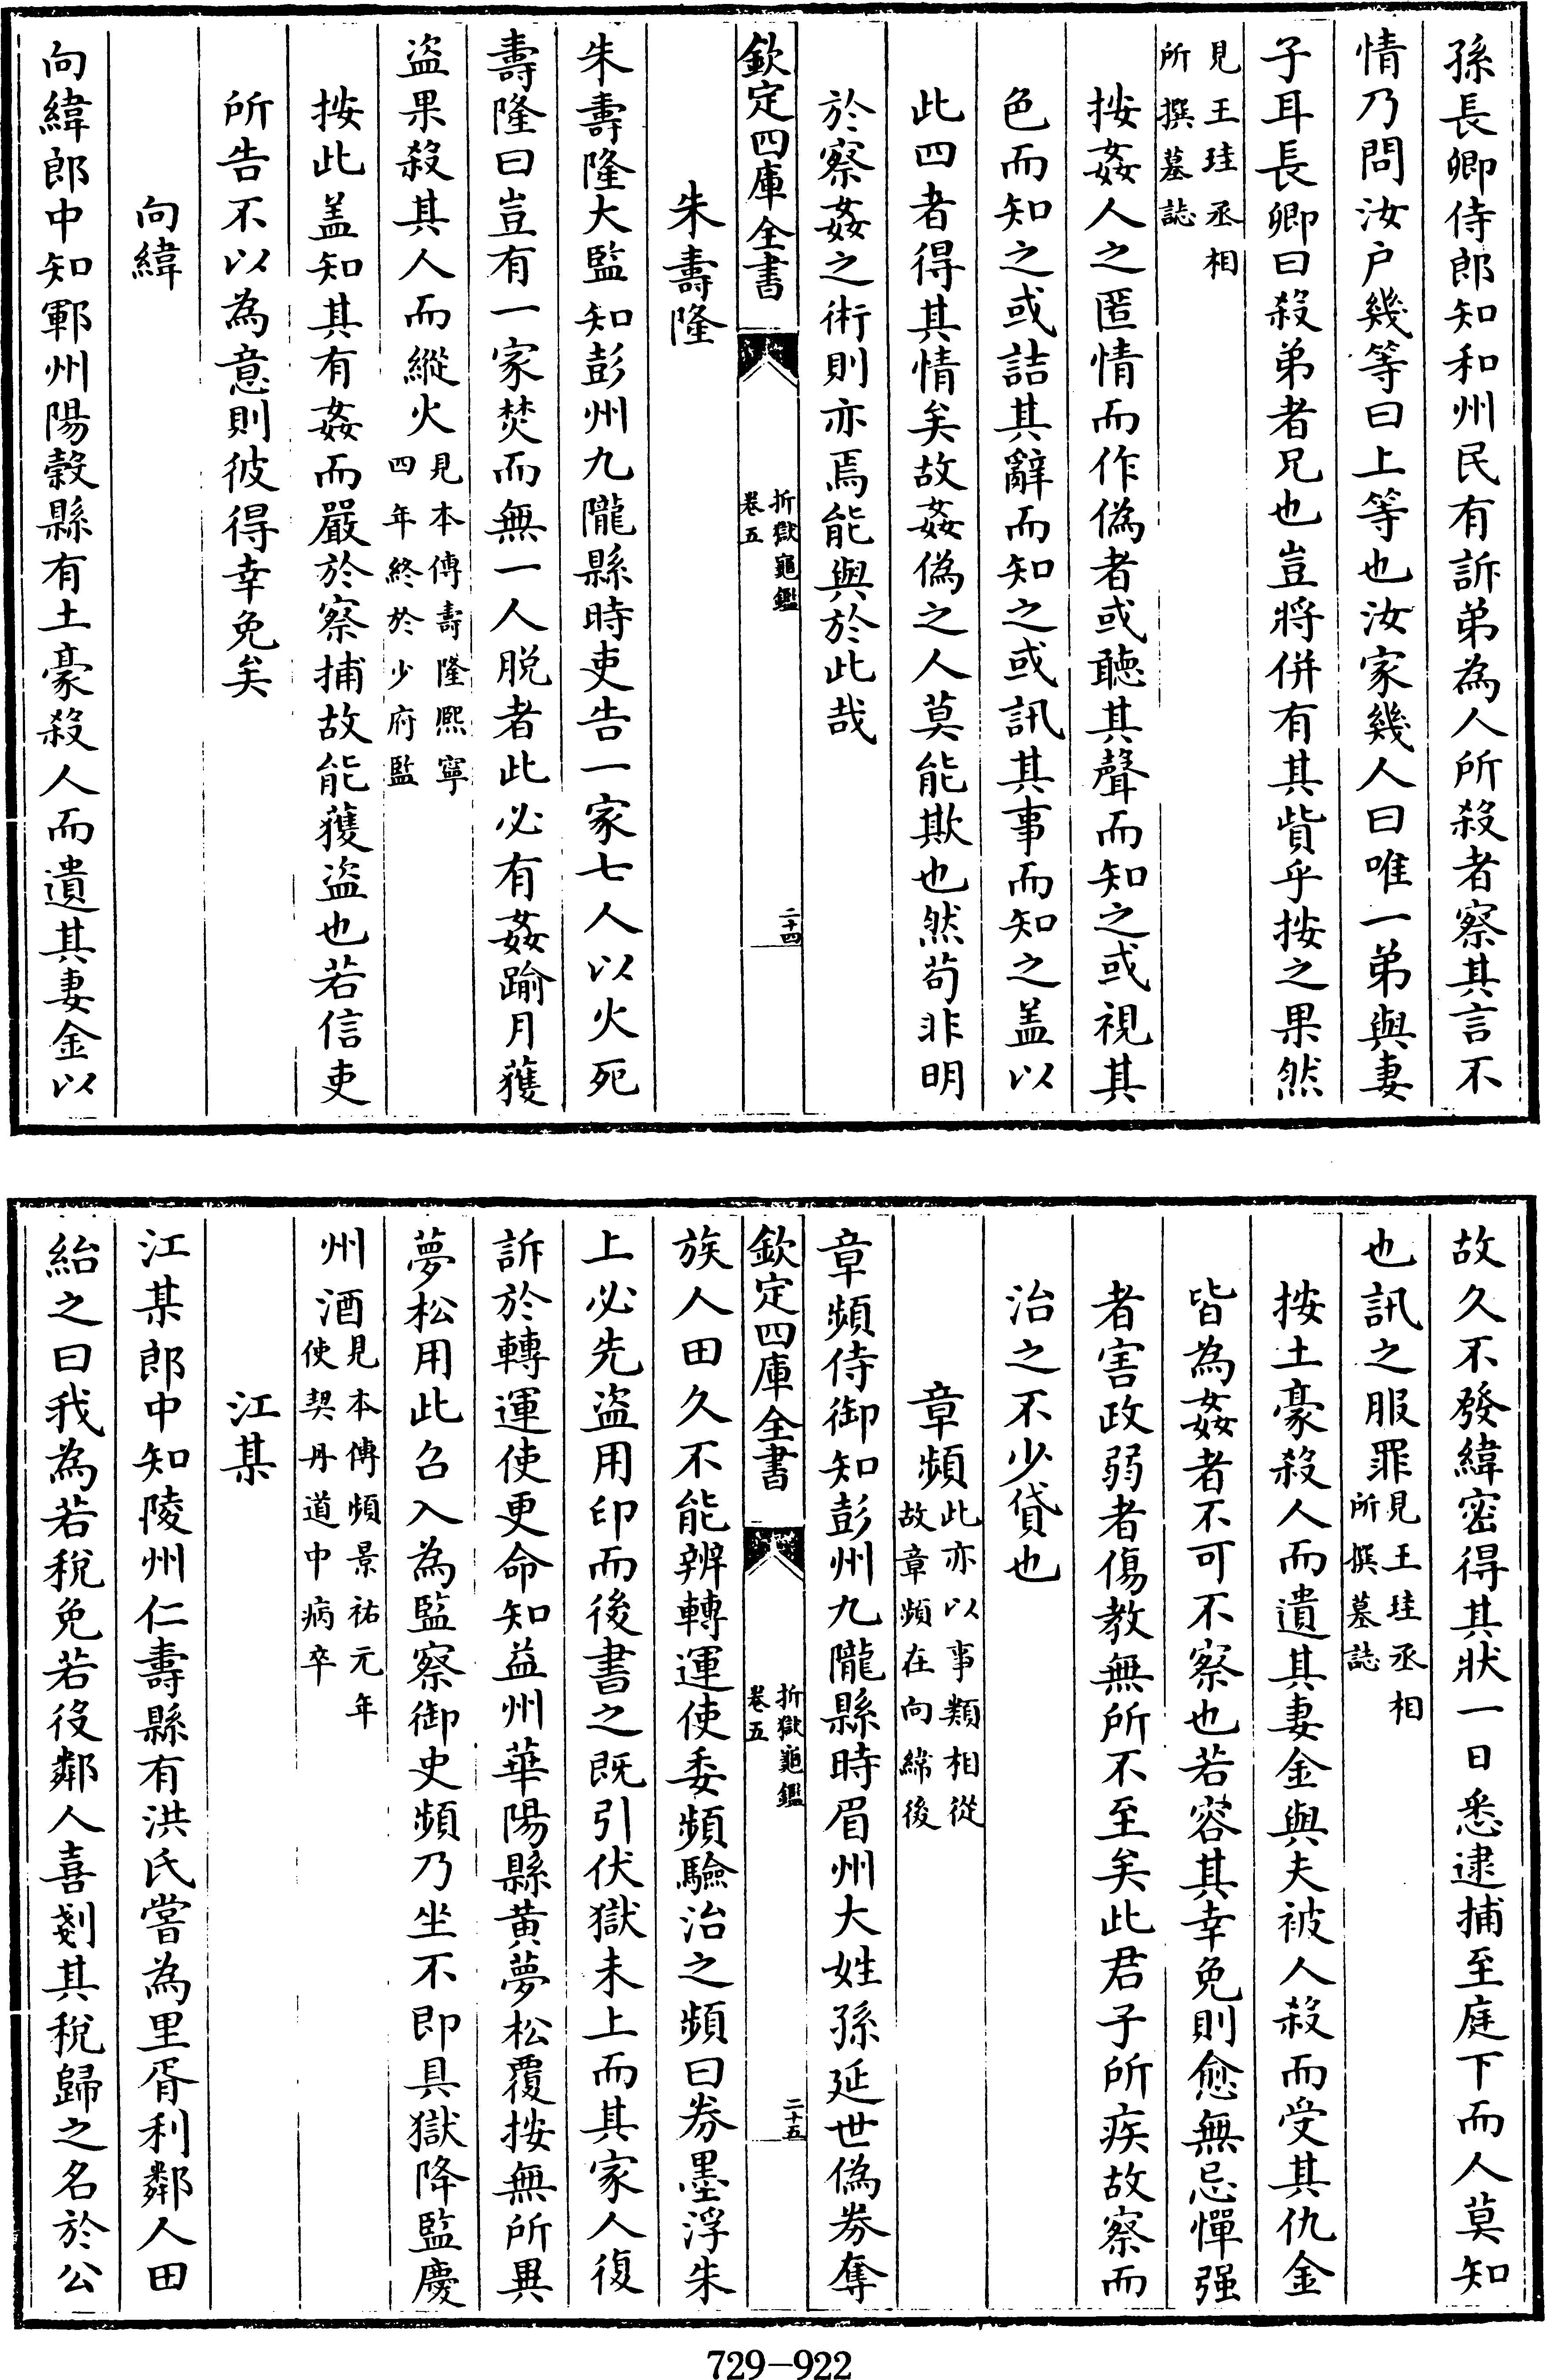 孫長卿侍郎知和州民有訴弟為人所殺者察其言不
情乃問汝户幾等曰上等也汝家幾人曰唯一弟與妻
子耳長卿曰殺弟者兄也豈將併有其貲乎按之果然
見王珪丞相
所撰墓誌
按姦人之匿情而作偽者或聽其聲而知之或視其
色而知之或詰其辭而知之或訊其事而知之盖以
此四者得其情矣故姦偽之人莫能欺也然苟非明
於察姦之術則亦焉能與於此哉
欽定四庫全書
折獄龜鑑
卷五
二十四
朱壽隆
朱壽隆大監知彭州九隴縣時吏告一家七人以火死
壽隆曰豈有一家焚而無一人脱者此必有姦踰月獲
盗果殺其人而縱火
見本傳壽隆熙寧
四年終於少府監
按此盖知其有姦而嚴於察捕故能獲盗也若信吏
所告不以為意則彼得幸免矣
向緯
向緯郎中知鄆州陽榖縣有土豪殺人而遺其妻金以
故久不發緯密得其狀一日悉逮捕至庭下而人莫知
也訊之服罪
見王珪丞相
所撰墓誌
按土豪殺人而遺其妻金與夫被人殺而受其仇金
皆為姦者不可不察也若容其幸免則愈無忌憚强
者害政弱者傷教無所不至矣此君子所疾故察而
治之不少貸也
章頻
此亦以事類相從
故章頻在向緯後
章頻侍御知彭州九隴縣時眉州大姓孫延世偽券奪
欽定四庫全書
折獄龜鑑
卷五
二十五
族人田久不能辨轉運使委頻驗治之頻曰券墨浮朱
上必先盗用印而後書之既引伏獄未上而其家人復
訴於轉運使更命知益州華陽縣黄夢松覆按無所異
夢松用此召入為監察御史頻乃坐不即具獄降監慶
州酒
見本傳頻景祐元年
使契丹道中病卒
江某
江某郎中知陵州仁壽縣有洪氏嘗為里胥利鄰人田
紿之曰我為若稅免若役鄰人喜剗其稅歸之名於公
729—922